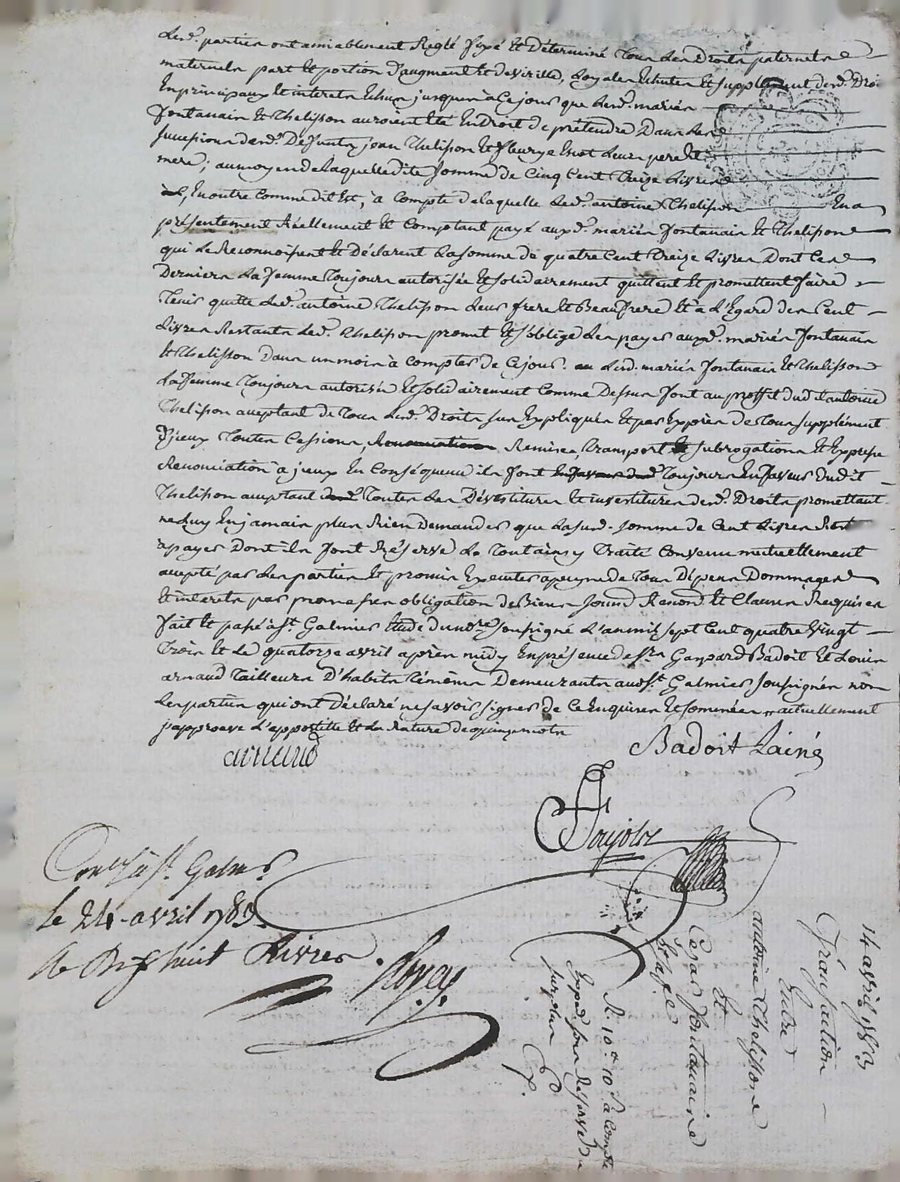 Lesd. parties ont amiablement Reglé fixé et Déterminé tous Les Droits paternels
maternels part et portion D'augment et de virille, Loyales Echutes et supplement desd. Droits
En principaux et interets Echus jusques à Ce jour que Lesd. mariés
fontanais et thelisson auroient Eté En Droit de pretendre Dans Les
successions desd. Defunts jean thelisson et fleurye Leurs pere et
mere; au moyen de Laquelle dite somme de Cinq Cent treize Livres
En outre Comme dit Est, à Compte de Laquelle Led. antoine thelisson En a
présentement Réellement et Comptant payé auxd. mariés fontanais et thelisson
qui Le Reconnoissent et Déclarent La somme de quatre Cent treize Livres Dont Ces
Derniers La femme toujours autorisée et solidairement quittent et promettent faire
tenir quitte Led. antoine thelisson Leur frere et Beaufrere et à L'Egard des Cent
Livres Restants Led. thelisson promet et s'oblige Les payer auxd. mariés fontanais
et thelisson Dans un mois à Compter de Ce jour. Lesd. mariés fontanais et thelisson
La femme toujours autorisée et solidairement Comme Dessus font au proffit dud. antoine
thelisson acceptant de tous Lesd. Droits sus Expliqués et par Exprès de tous supplement
D'iceux toutes Cessions, Remises, transport et subrogation et Expresse
Renonciation a iceux En Conséquence ils font toujours En faveur dudit
thelisson acceptant toutes Les Dévestitures et investitures desd. Droits promettant
ne Luy En jamais plus Rien Demander que La sud. somme de Cent Livres Rest
a payer Dont ils font Réserve Le tout ainsy traité Convenu mutuellement
accepté par Les parties et promis Executer a peyne de tous Dépens Dommages
et interets par promesses obligation de Biens soumd. Renond. et Clauses Requises
fait et passé à St. Galmier Etude du nore. soussigné L'an mil sept Cent quatre vingt
trois et Le quatorze avril après midy En présence de Srs Gaspard Badoit et Louis
arnaud tailleurs D'habits témoins Demeurants aud. St. Galmier soussignés non
Les parties qui ont Déclaré ne savoir signer de Ce Enquises et sommées actuellement
j'approuve L'appostille et La Rature de quinze mots
arnaud
Badoit Lainé
Conllé à St. Galmr.
le 24 avril 1783.
R Dix huit Livres
14 avril 1783
Transaction
Entre
antoine thelissone
Et
Cesar fontanaine
R. 10tt 10s a Compte